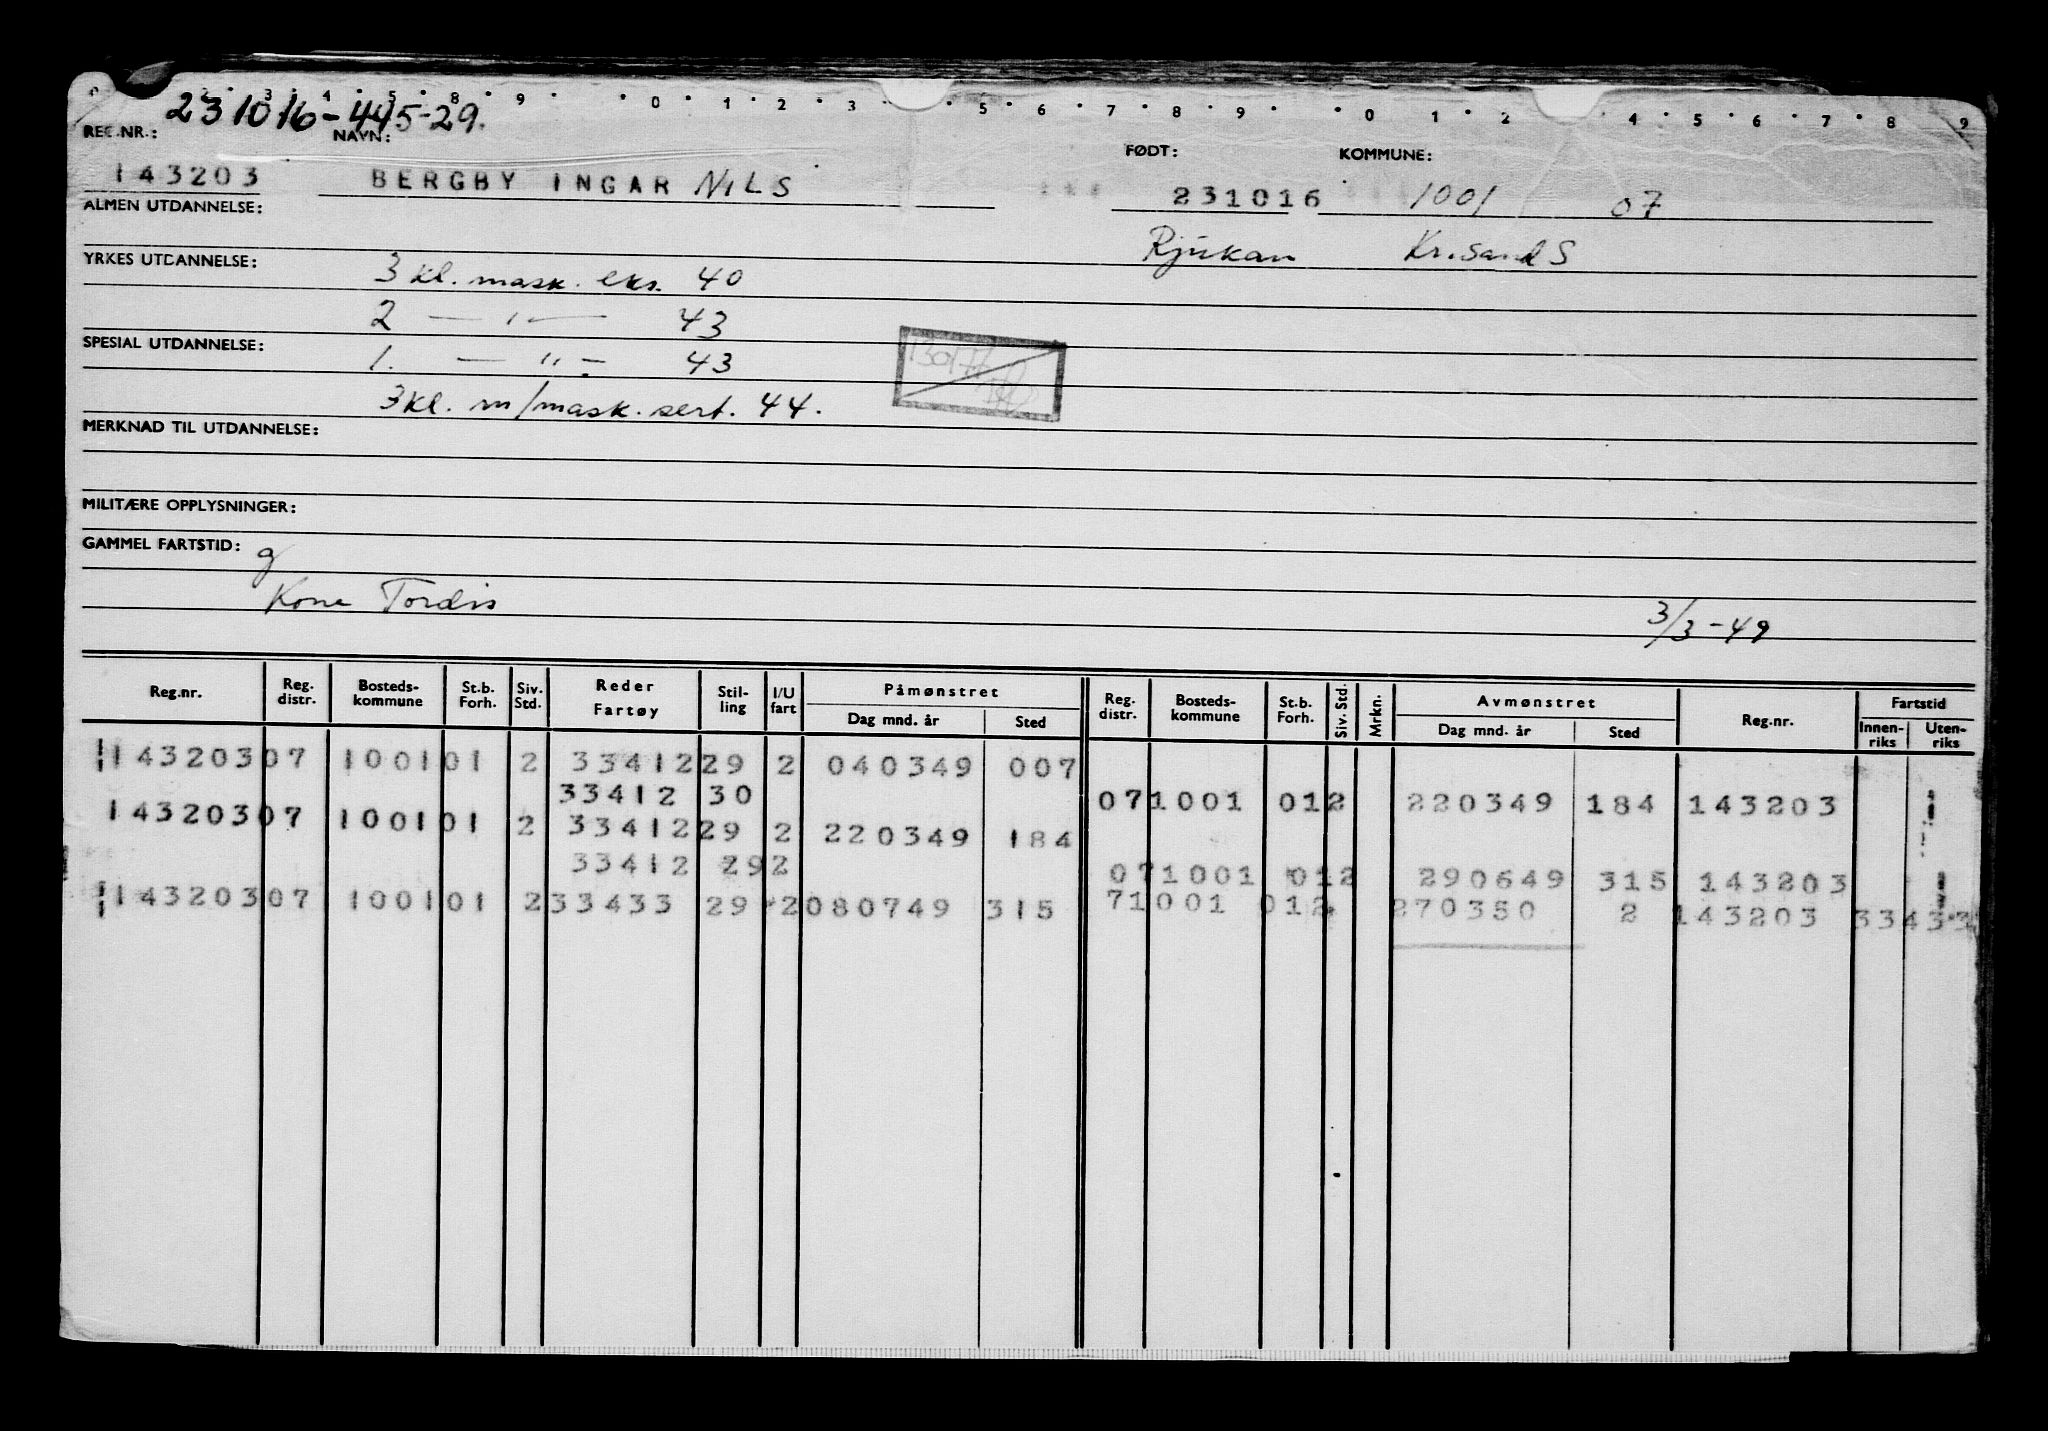 0 2 3 4 5 8 9 0 1 2 3 5 6 7 8 9 0 1 2 4 5 6 7 8 9
231016-445-29.
REG.NR.: NAVN: FØDT: KOMMUNE:
143203 BERGBY INGAR NILS 231016 1001 07
ALMEN UTDANNELSE:
Rjukan Kr.sand S
YRKES UTDANNELSE: 3 kl. mask. eks. 40
2 — " — 43
SPESIAL UTDANNELSE: 1. — " — 43
3 kl. m/mask. sert. 44.
MERKNAD TIL UTDANNELSE:
MILITÆRE OPPLYSNINGER:
GAMMEL FARTSTID: g
Kone Tordis 3/3-49
Reg.nr. Reg. distr. Bosteds-kommune St.b. Forh. Siv. Std. Reder Fartøy Stil-ling I/U fart Påmønstret Dag mnd. år Sted Reg. distr. Bosteds-kommune St.b. Forh. Siv. Std. Mrkn. Avmønstret Dag mnd. år Sted Reg.nr. Fartstid Innen-riks Uten-riks
143203 07 1001 01 2 33412 29 2 040349 007
33412 30 07 1001 01 2 220349 184 143203
143203 07 1001 01 2 33412 29 2 220349 184
33412 29 2 07 1001 01 2 290649 315 143203
143203 07 1001 01 2 33433 29 2 080749 315 7 1001 01 2 270350 2 143203 33433